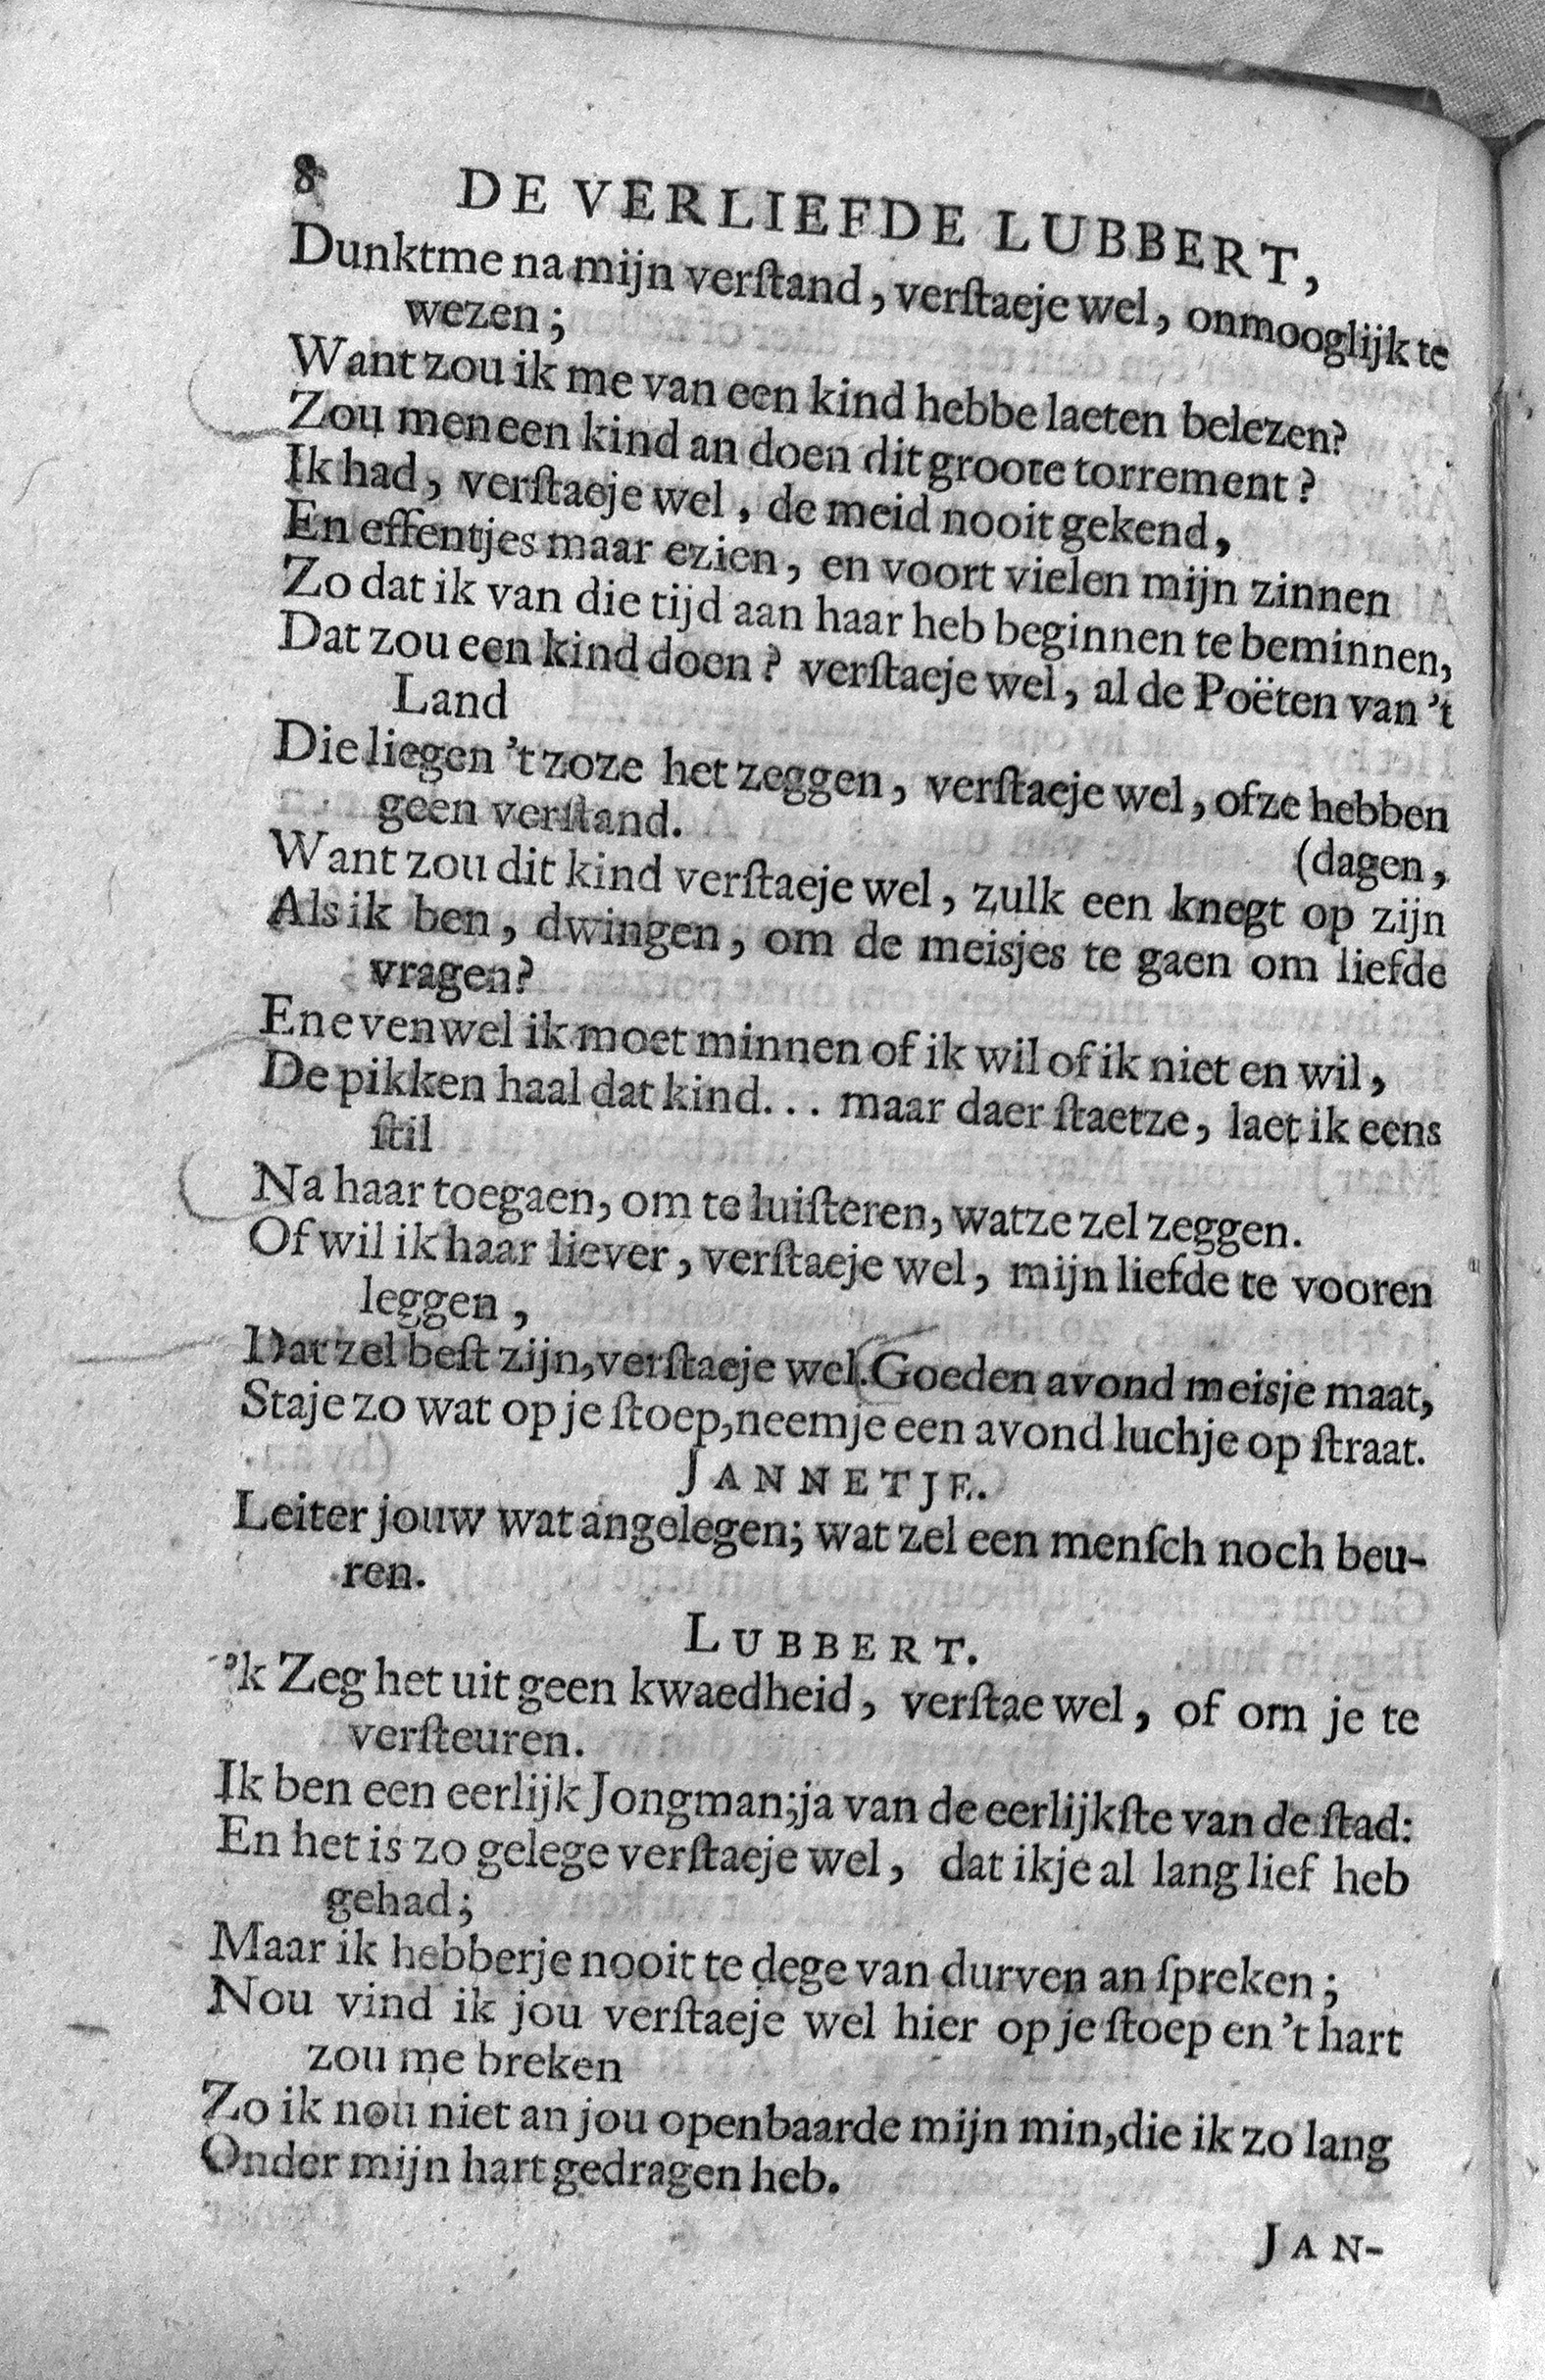 8 DE VERLIEFDE LUBBERT,
Dunktme na mijn verſtand, verſtaeje wel, onmooglijk te
wezen;
Want zou ik me van een kind hebbe laeten belezen?
Zou men een kind an doen dit groote torrement?
Ik had, verſtaeje wel, de meid nooit gekend,
En effentjes maar ezien, en voort vielen mijn zinnen
Zo dat ik van die tijd aan haar heb beginnen te beminnen,
Dat zou een kind doen? verſtaeje wel, al de Poëten van 't
Land
Die liegen 't zoze het zeggen, verſtaeje wel, ofze hebben
geen verſtand.
(dagen,
Want zou dit kind verſtaeje wel, zulk een knegt op zijn
Als ik ben, dwingen, om de meisjes te gaen om liefde
vragen?
En evenwel ik moet minnen of ik wil of ik niet en wil,
De pikken haal dat kind... maar daer ſtaetze, laet ik eens
ſtil
Na haar toegaen, om te luiſteren, watze zel zeggen.
Of wil ik haar liever, verſtaeje wel, mijn liefde te vooren
leggen,
Dat zel beſt zijn, verſtaeje wel. Goeden avond meisje maat,
Staje zo wat op je ſtoep, neemje een avond luchje op ſtraat.
JANNETJE.
Leiter jouw wat angelegen; wat zel een menſch noch beu-
ren.
LUBBERT.
'k Zeg het uit geen kwaedheid, verſtae wel, of om je te
verſteuren.
Ik ben een eerlijk Jongman; ja van de eerlijkſte van de ſtad:
En het is zo gelege verſtaeje wel, dat ikje al lang lief heb
gehad;
Maar ik hebberje nooit te dege van durven an ſpreken;
Nou vind ik jou verſtaeje wel hier op je ſtoep en 't hart
zou me breken
Zo ik nou niet an jou openbaarde mijn min, die ik zo lang
Onder mijn hart gedragen heb.
JAN-